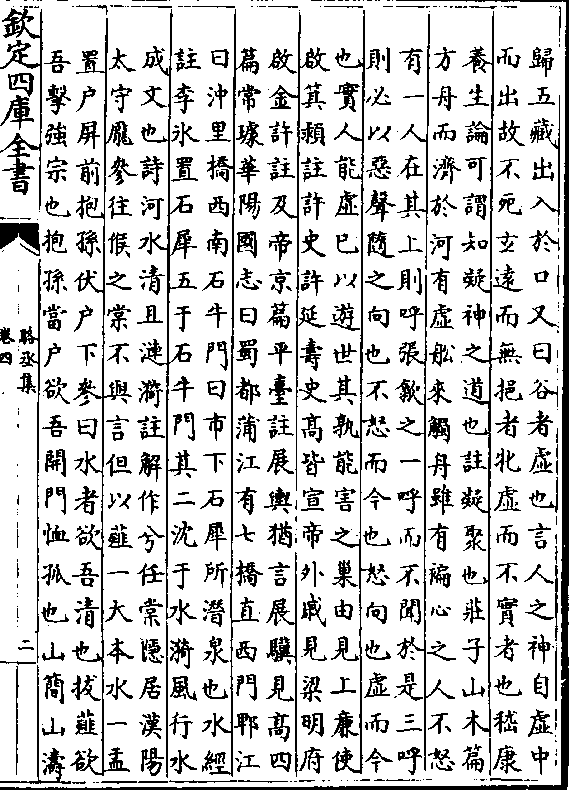 歸五藏出入於口又曰谷者虛也言人之神自虛中
而出故不死玄遠而無挹者牝虛而不實者也嵇康
養生論可謂知凝神之道也註凝聚也莊子山木篇
方舟而濟於河有虛船來觸舟雖有褊心之人不怒
有一人在其上則呼張歙之一呼而不聞於是三呼
則必以惡聲隨之向也不怒而今也怒向也虛而今
也實人能虛已以遊世其孰能害之巢由見上亷使
啟箕潁註許史許延壽史髙皆宣帝外戚見梁明府
啟金許註及帝京篇平臺註展輿猶言展驥見髙四
篇常璩華陽國志曰蜀都蒲江有七橋直西門郫江
曰沖里橋西南石牛門曰市下石犀所潛泉也水經
註李氷置石犀五于石牛門其二沈于水漪風行水
成文也詩河水清且漣漪註解作兮任棠隱居漢陽
太守龐參往候之棠不與言但以薤一大本水一盂
置户屏前抱孫伏户下參曰水者欲吾清也拔薤欲
吾擊強宗也抱孫當户欲吾開門恤孤也山簡山濤
欽定四庫全書
駱丞集
卷四
二